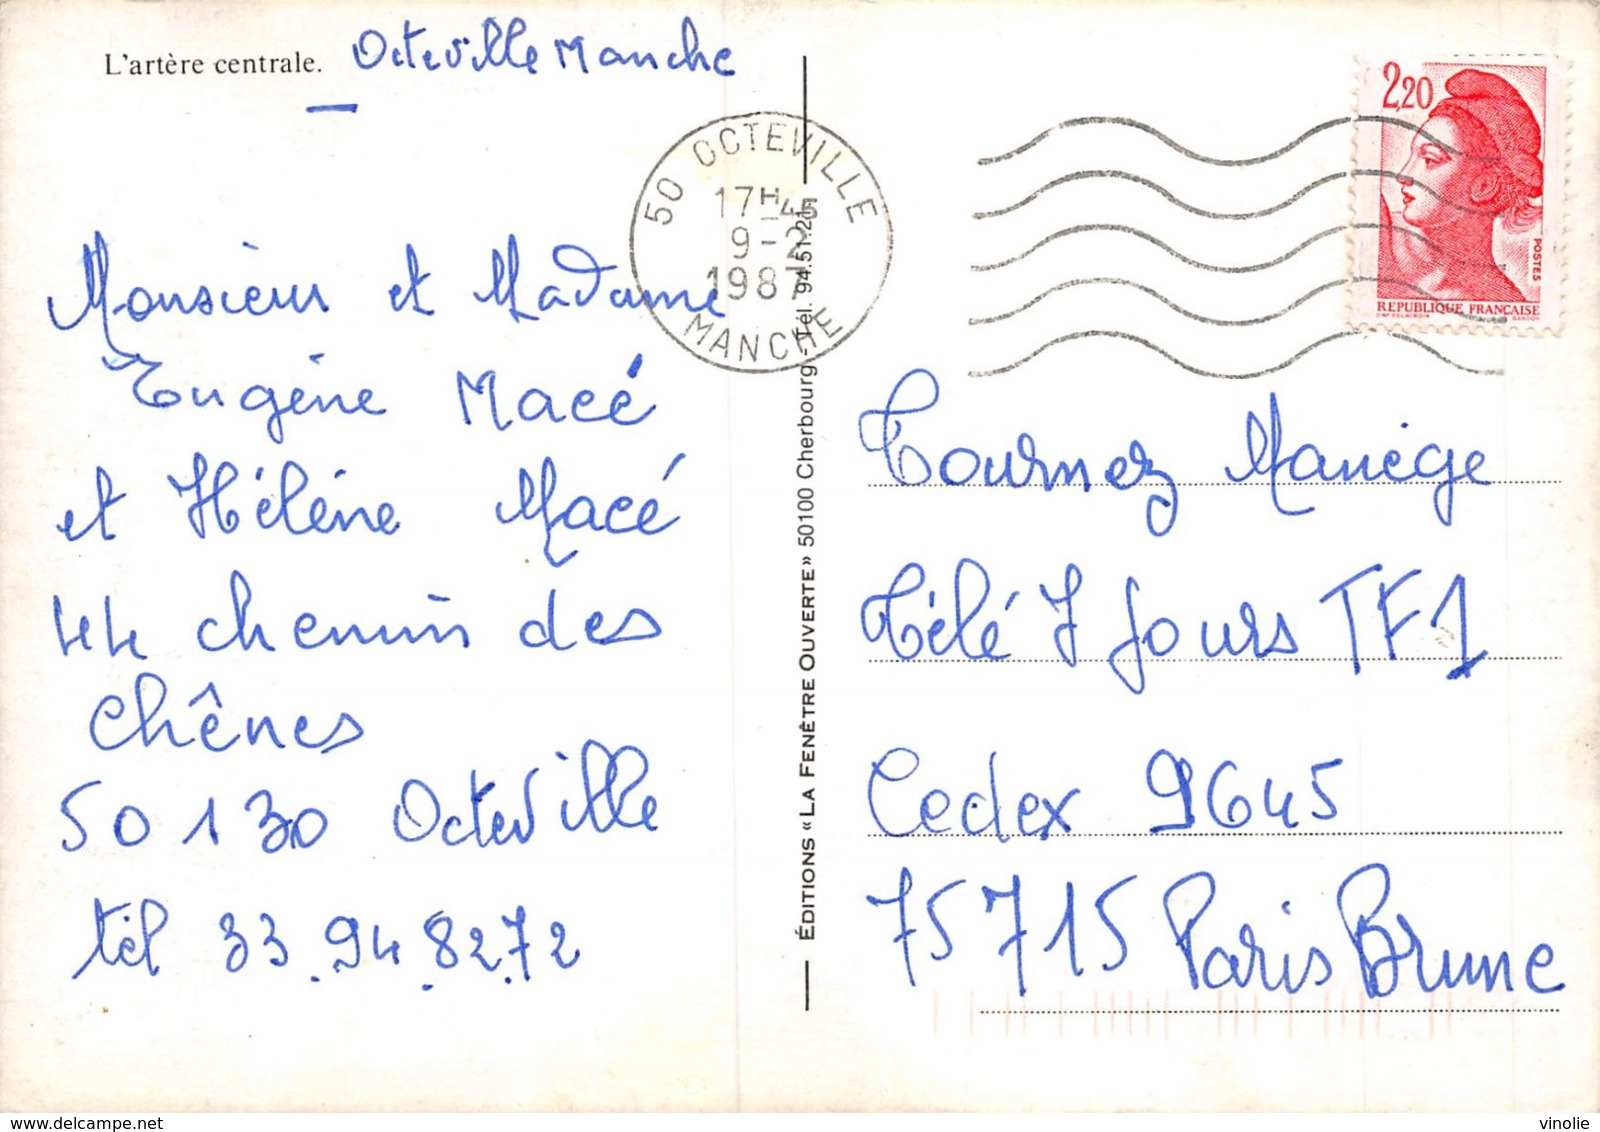 L'artère centrale. Octeville Manche
50 OCTEVILLE
17H-45
9-2
1987
MANCHE
2,20
POSTES
REPUBLIQUE FRANÇAISE
Monsieur et Madame
Eugène Macé
et Hélène Macé
44 chemin des
Chênes
50130 Octeville
tél 33.94.82.72
ÉDITIONS « LA FENÊTRE OUVERTE » 50100 Cherbourg - Tél. 94.51.21
Tournez Manège
Télé 7 Jours TF1
Cedex 9645
75715 Paris Brune
vinolie